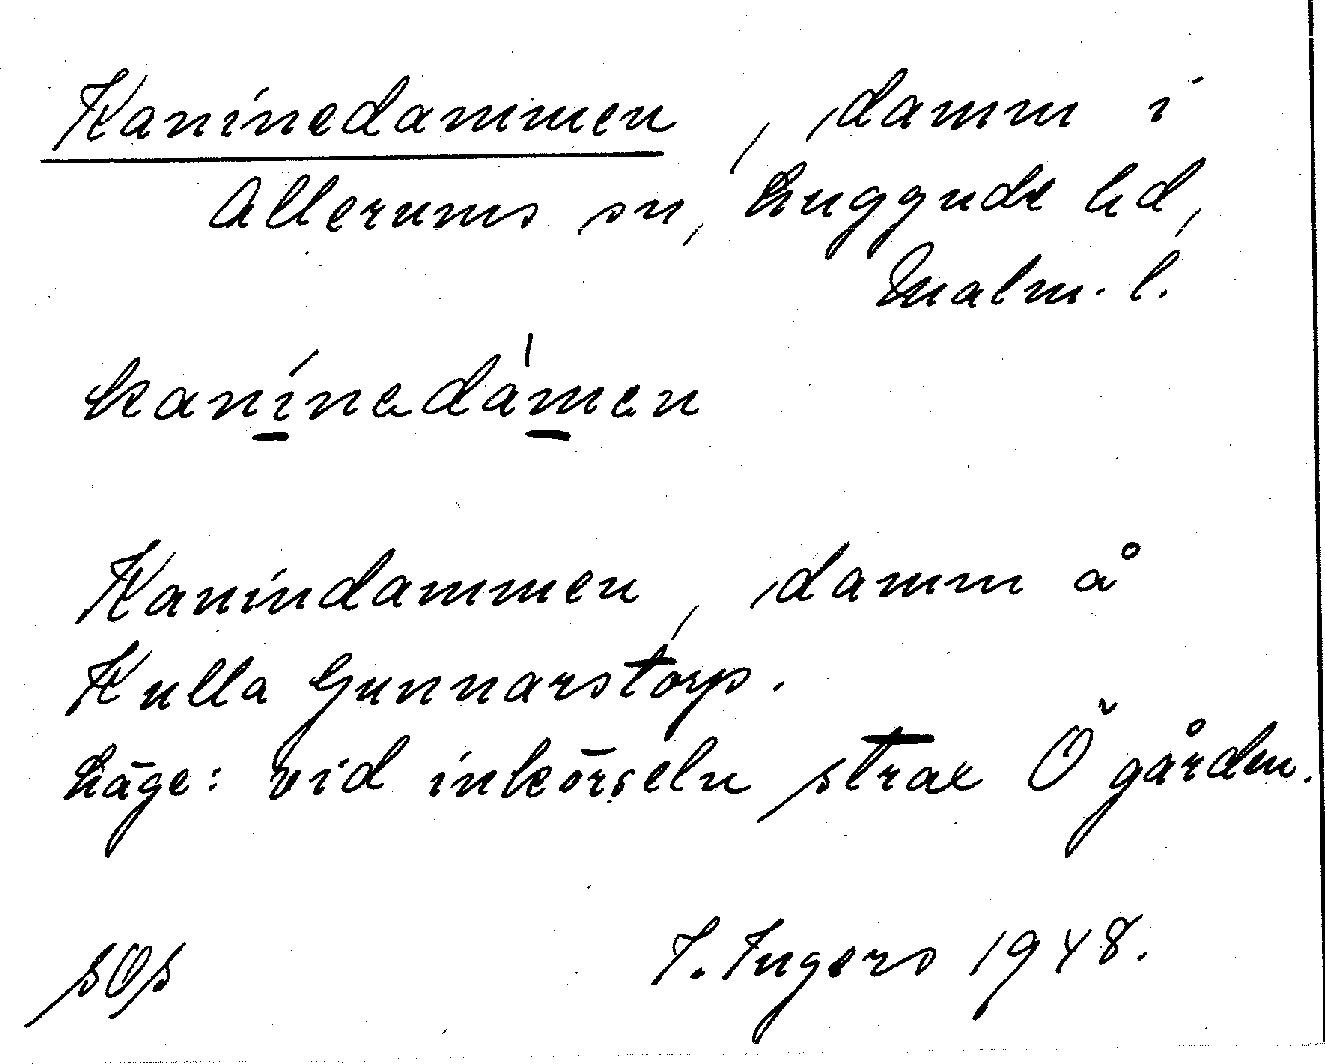 Kaninedammen, damm i
Allerums sn, Luggude hd,
Malm. l.
kanínedámen
Kanindammen, damm å
Kulla Gunnarstorp.
Läge: vid inkörseln strax Ö gården.
I. Ingers 1948.